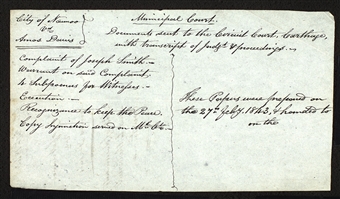 City of Nauvoo
vs
Amos Davis
Municipal Court.
Documents sent to the Circuit Court, Carthage,
with transcript of Judgt & proceedings.—
Complaint of Joseph Smith—
Warrant on said Complaint
4 Subpoenas for Witnesses—
Execution—
Recognizance to keep the Peace
Copy Injunction served on M. Ct—
These Papers were prepared on
the 27th Feby. 1843, & handed to
on the